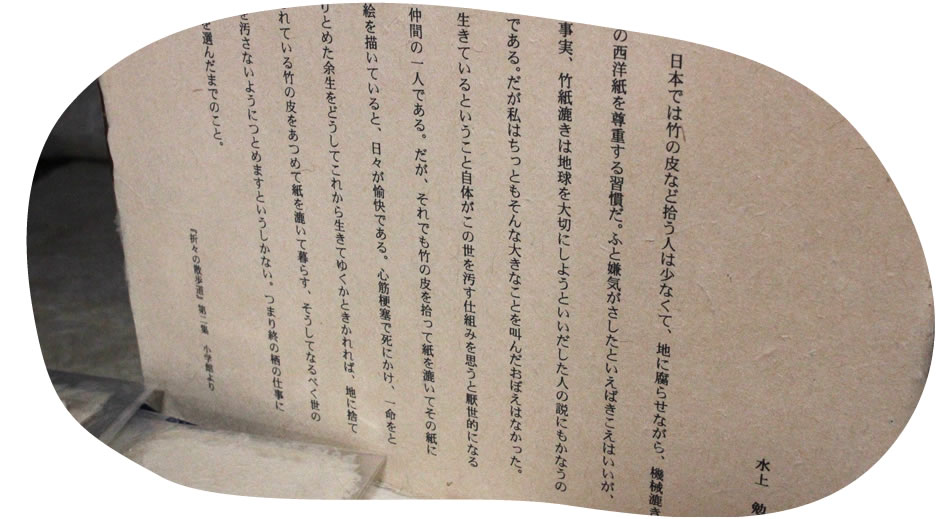 水上 勉
日本では竹の皮など拾う人は少なくて、地に腐らせながら、機械漉き
の西洋紙を尊重する習慣だ。ふと嫌気がさしたといえばきこえはいいが、
事実、竹紙漉きは地球を大切にしようといいだした人の説にもかなうの
である。だが私はちっともそんな大きなことを叫んだおぼえはなかった。
生きているということ自体がこの世を汚す仕組みを思うと厭世的になる
仲間の一人である。だが、それでも竹の皮を拾って紙を漉いてその紙に
絵を描いていると、日々が愉快である。心筋梗塞で死にかけ、一命をと
りとめた余生をどうしてこれから生きてゆくかときかれれば、地に捨て
れている竹の皮をあつめて紙を漉いて暮らす、そうしてなるべく世の
を汚さないようにつとめますというしかない。つまり終の栖の仕事に
を選んだまでのこと。
『折々の散歩道』第二集 小学館より